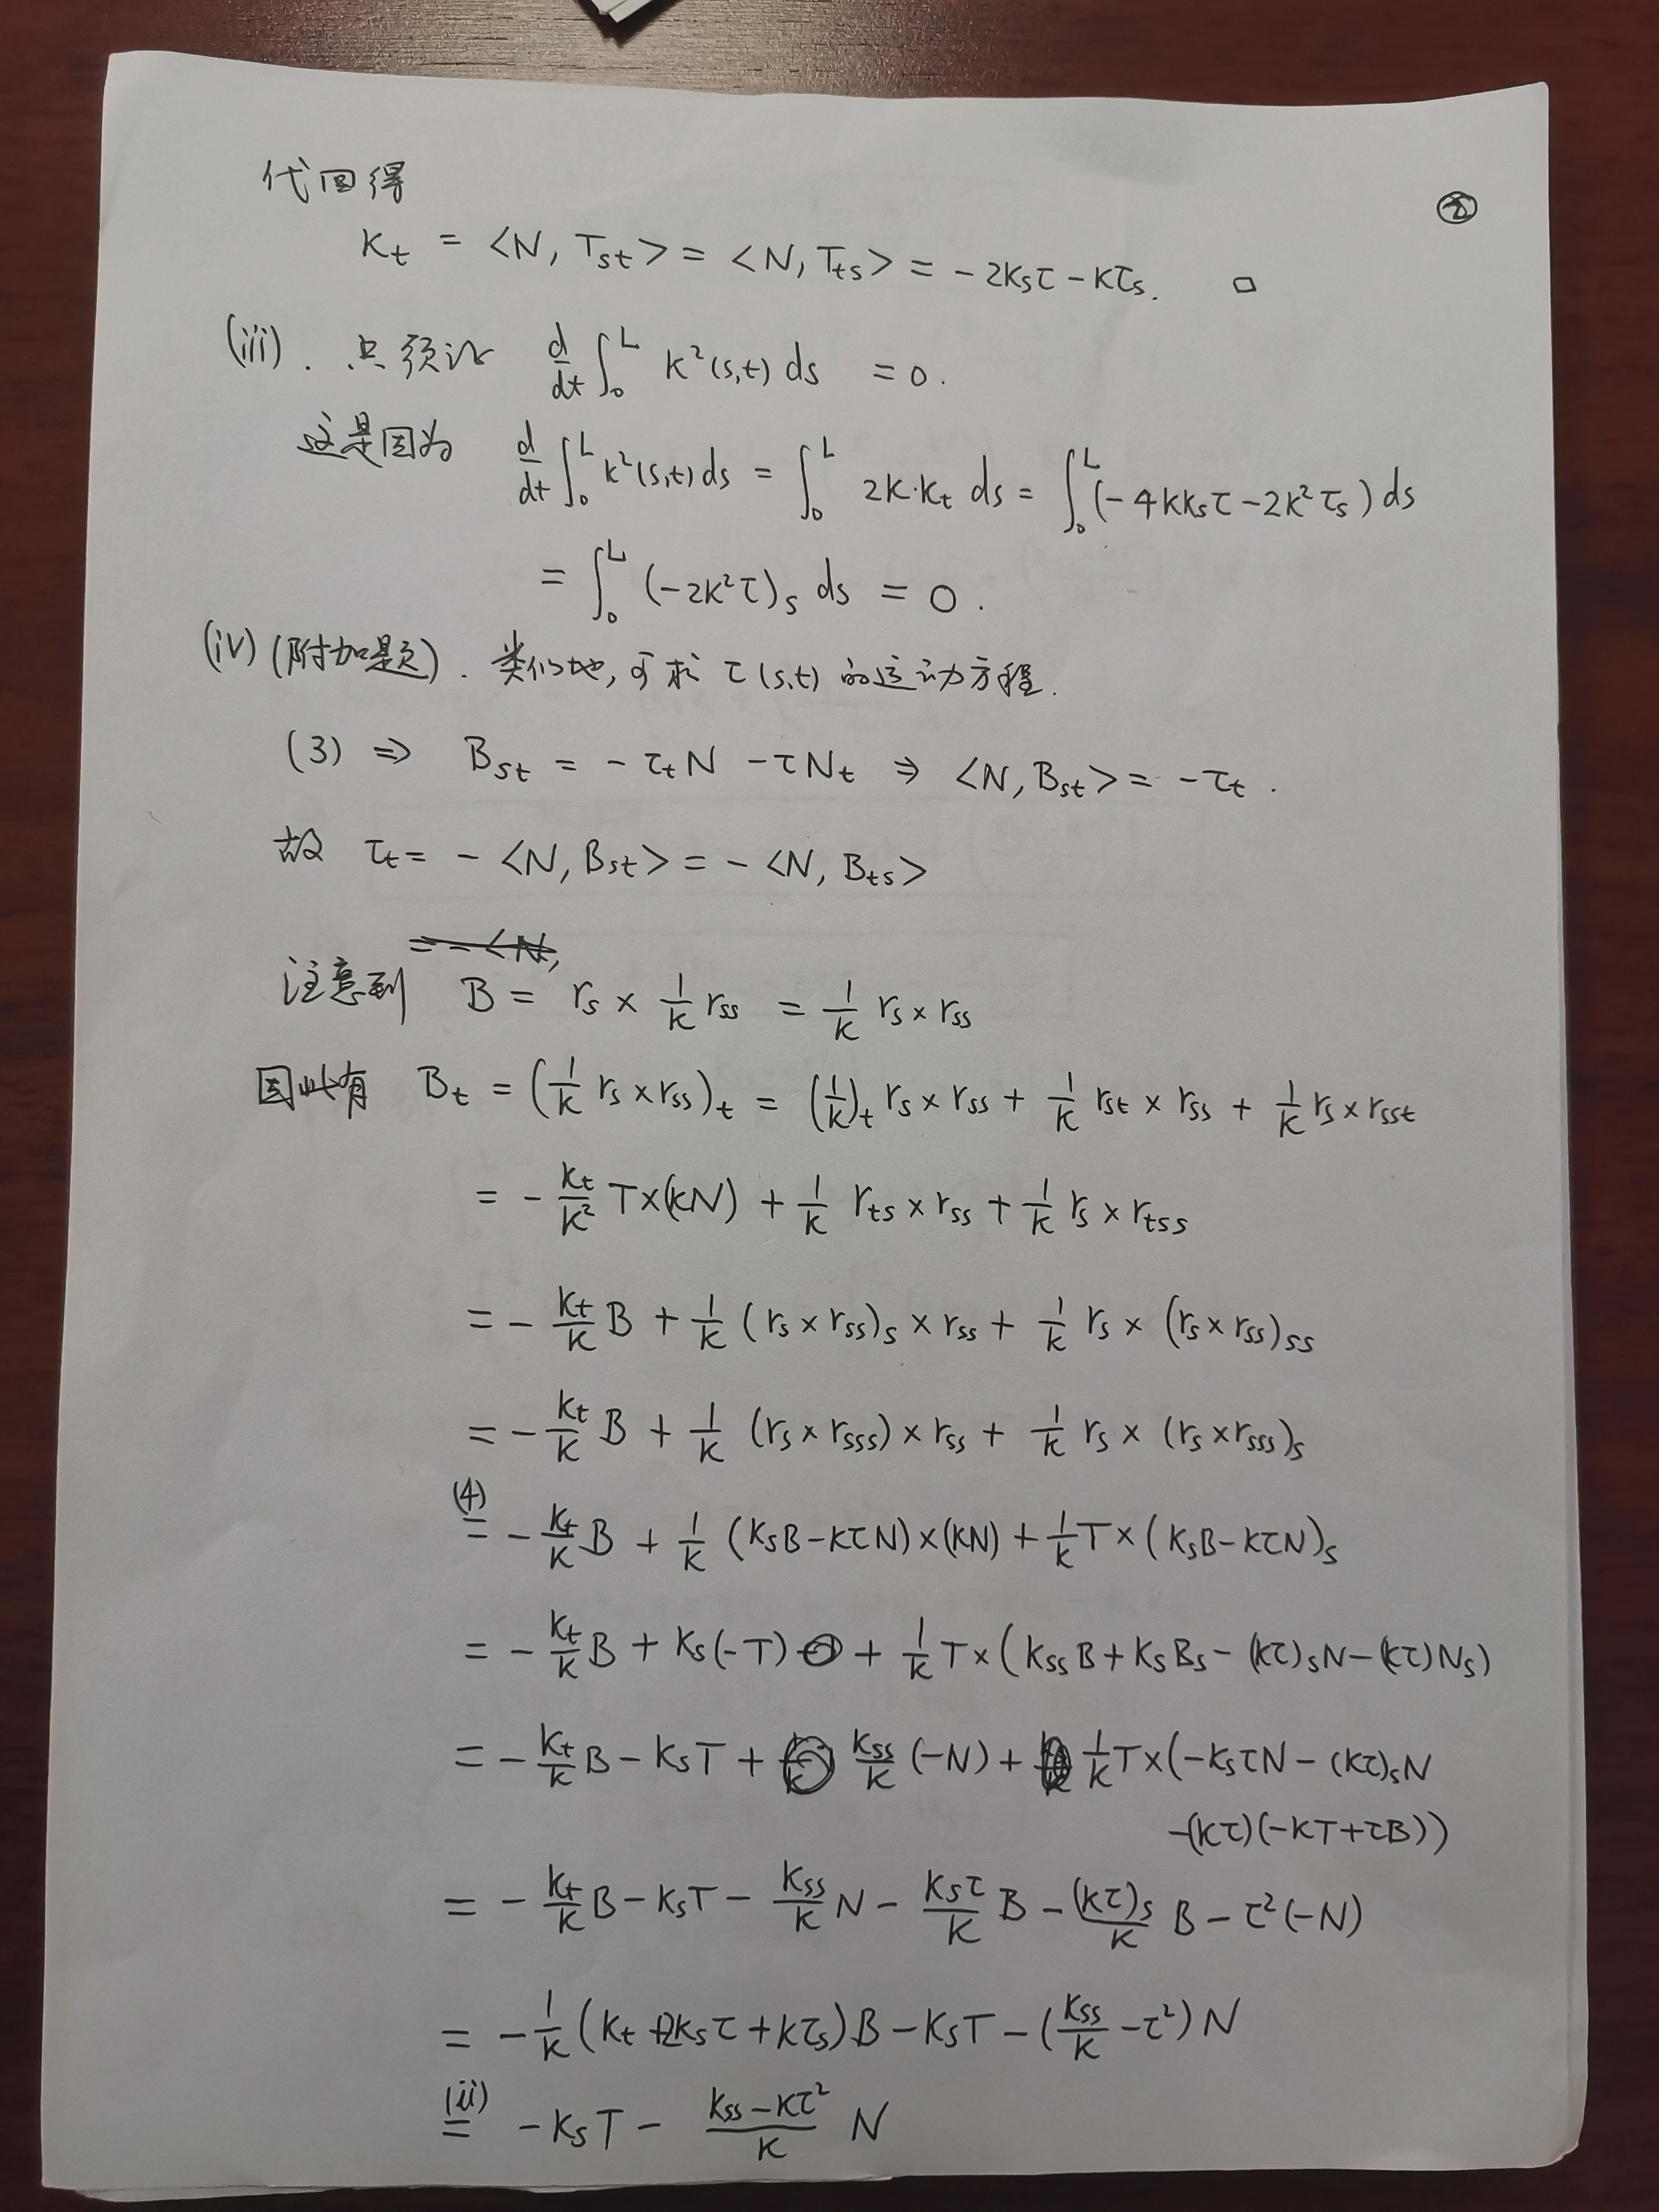 代回得
κ_t = <N, T_{st}> = <N, T_{ts}> = -2κ_sτ - κτ_s. □
(iii). 只须证 d/dt ∫_0^L κ²(s,t) ds = 0.
这是因为 d/dt ∫_0^L κ²(s,t) ds = ∫_0^L 2κ·κ_t ds = ∫_0^L (-4κκ_sτ - 2κ²τ_s) ds
= ∫_0^L (-2κ²τ)_s ds = 0.
(iv) (附加题). 类似地, 可求 τ(s,t) 的运动方程.
(3) ⇒ B_{st} = -τ_tN - τN_t ⇒ <N, B_{st}> = -τ_t.
故 τ_t = -<N, B_{st}> = -<N, B_{ts}>
注意到 B = r_s × 1/κ r_{ss} = 1/κ r_s × r_{ss}
因此有 B_t = (1/κ r_s × r_{ss})_t = (1/κ)_t r_s × r_{ss} + 1/κ r_{st} × r_{ss} + 1/κ r_s × r_{sst}
= -κ_t/κ² T×(κN) + 1/κ r_{ts} × r_{ss} + 1/κ r_s × r_{tss}
= -κ_t/κ B + 1/κ (r_s × r_{ss})_s × r_{ss} + 1/κ r_s × (r_s × r_{ss})_{ss}
= -κ_t/κ B + 1/κ (r_s × r_{sss}) × r_{ss} + 1/κ r_s × (r_s × r_{sss})_s
(4)= -κ_t/κ B + 1/κ (κ_sB - κτN)×(κN) + 1/κ T×(κ_sB - κτN)_s
= -κ_t/κ B + κ_s(-T) + 1/κ T×(κ_{ss}B + κ_sB_s - (κτ)_sN - (κτ)N_s)
= -κ_t/κ B - κ_sT + κ_{ss}/κ (-N) + 1/κ T×(-κ_sτN - (κτ)_sN
-(κτ)(-κT+τB))
= -κ_t/κ B - κ_sT - κ_{ss}/κ N - κ_sτ/κ B - (κτ)_s/κ B - τ²(-N)
= -1/κ (κ_t + 2κ_sτ + κτ_s)B - κ_sT - (κ_{ss}/κ - τ²)N
(ii)= -κ_sT - (κ_{ss} - κτ²)/κ N